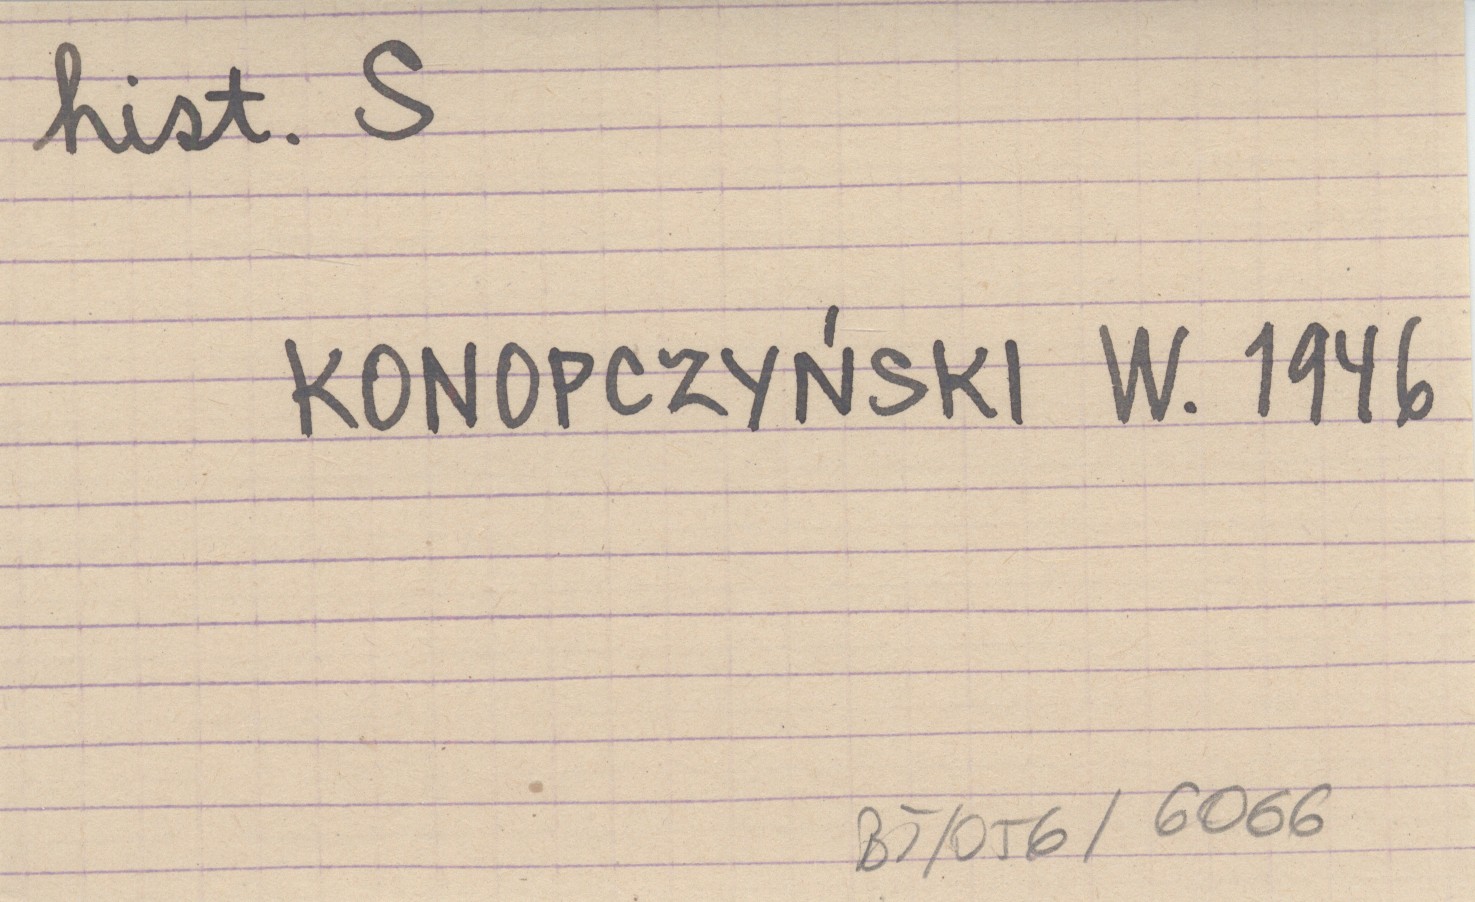 hist. S
KONOPCZYŃSKI W. 1946
BJ/OJG/ 6066